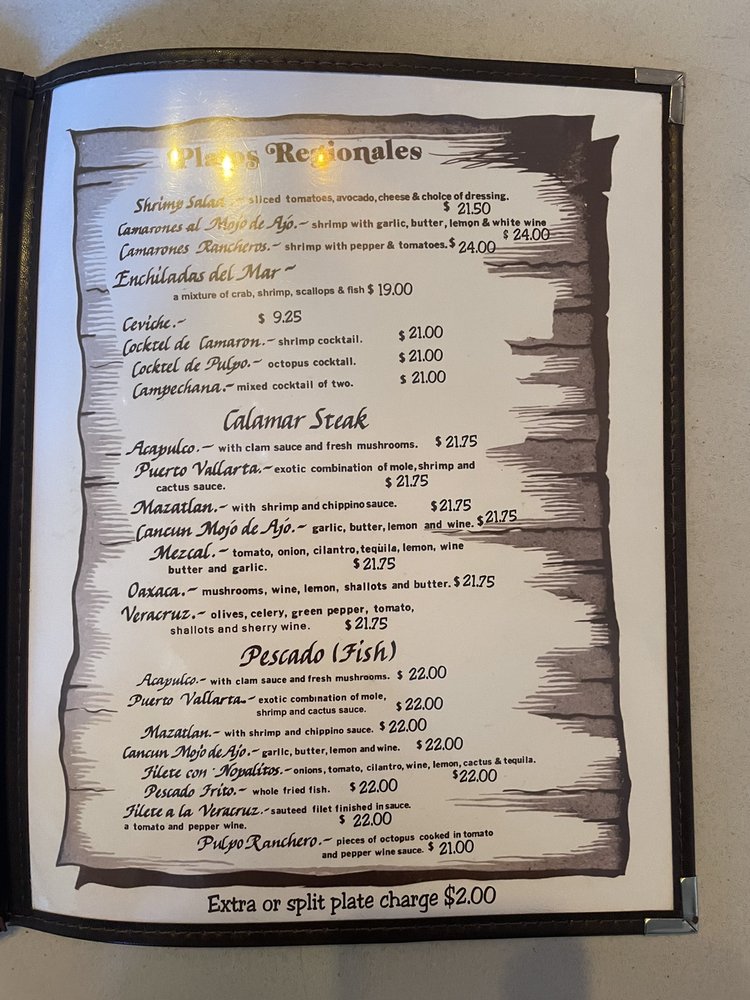 Platos Regionales
Shrimp Salad.- sliced tomatoes, avocado, cheese & choice of dressing.
$ 21.50
Camarones al Mojo de Ajo.- shrimp with garlic, butter, lemon & white wine
$ 24.00
Camarones Rancheros.- shrimp with pepper & tomatoes. $ 24.00
Enchiladas del Mar -
a mixture of crab, shrimp, scallops & fish $ 19.00
Ceviche.- $ 9.25
Cocktel de Camaron.- shrimp cocktail. $ 21.00
Cocktel de Pulpo.- octopus cocktail. $ 21.00
Campechana.- mixed cocktail of two. $ 21.00
Calamar Steak
Acapulco.- with clam sauce and fresh mushrooms. $ 21.75
Puerto Vallarta.- exotic combination of mole, shrimp and
cactus sauce. $ 21.75
Mazatlan.- with shrimp and chippino sauce. $ 21.75
Cancun Mojo de Ajo.- garlic, butter, lemon and wine. $ 21.75
Mezcal.- tomato, onion, cilantro, tequila, lemon, wine
butter and garlic. $ 21.75
Oaxaca.- mushrooms, wine, lemon, shallots and butter. $ 21.75
Veracruz.- olives, celery, green pepper, tomato,
shallots and sherry wine. $ 21.75
Pescado (Fish)
Acapulco.- with clam sauce and fresh mushrooms. $ 22.00
Puerto Vallarta.- exotic combination of mole,
shrimp and cactus sauce. $ 22.00
Mazatlan.- with shrimp and chippino sauce. $ 22.00
Cancun Mojo de Ajo.- garlic, butter, lemon and wine. $ 22.00
Filete con Nopalitos.- onions, tomato, cilantro, wine, lemon, cactus & tequila.
$22.00
Pescado Frito.- whole fried fish. $ 22.00
Filete a la Veracruz.- sauteed filet finished in sauce.
a tomato and pepper wine. $ 22.00
Pulpo Ranchero.- pieces of octopus cooked in tomato
and pepper wine sauce. $ 21.00
Extra or split plate charge $2.00